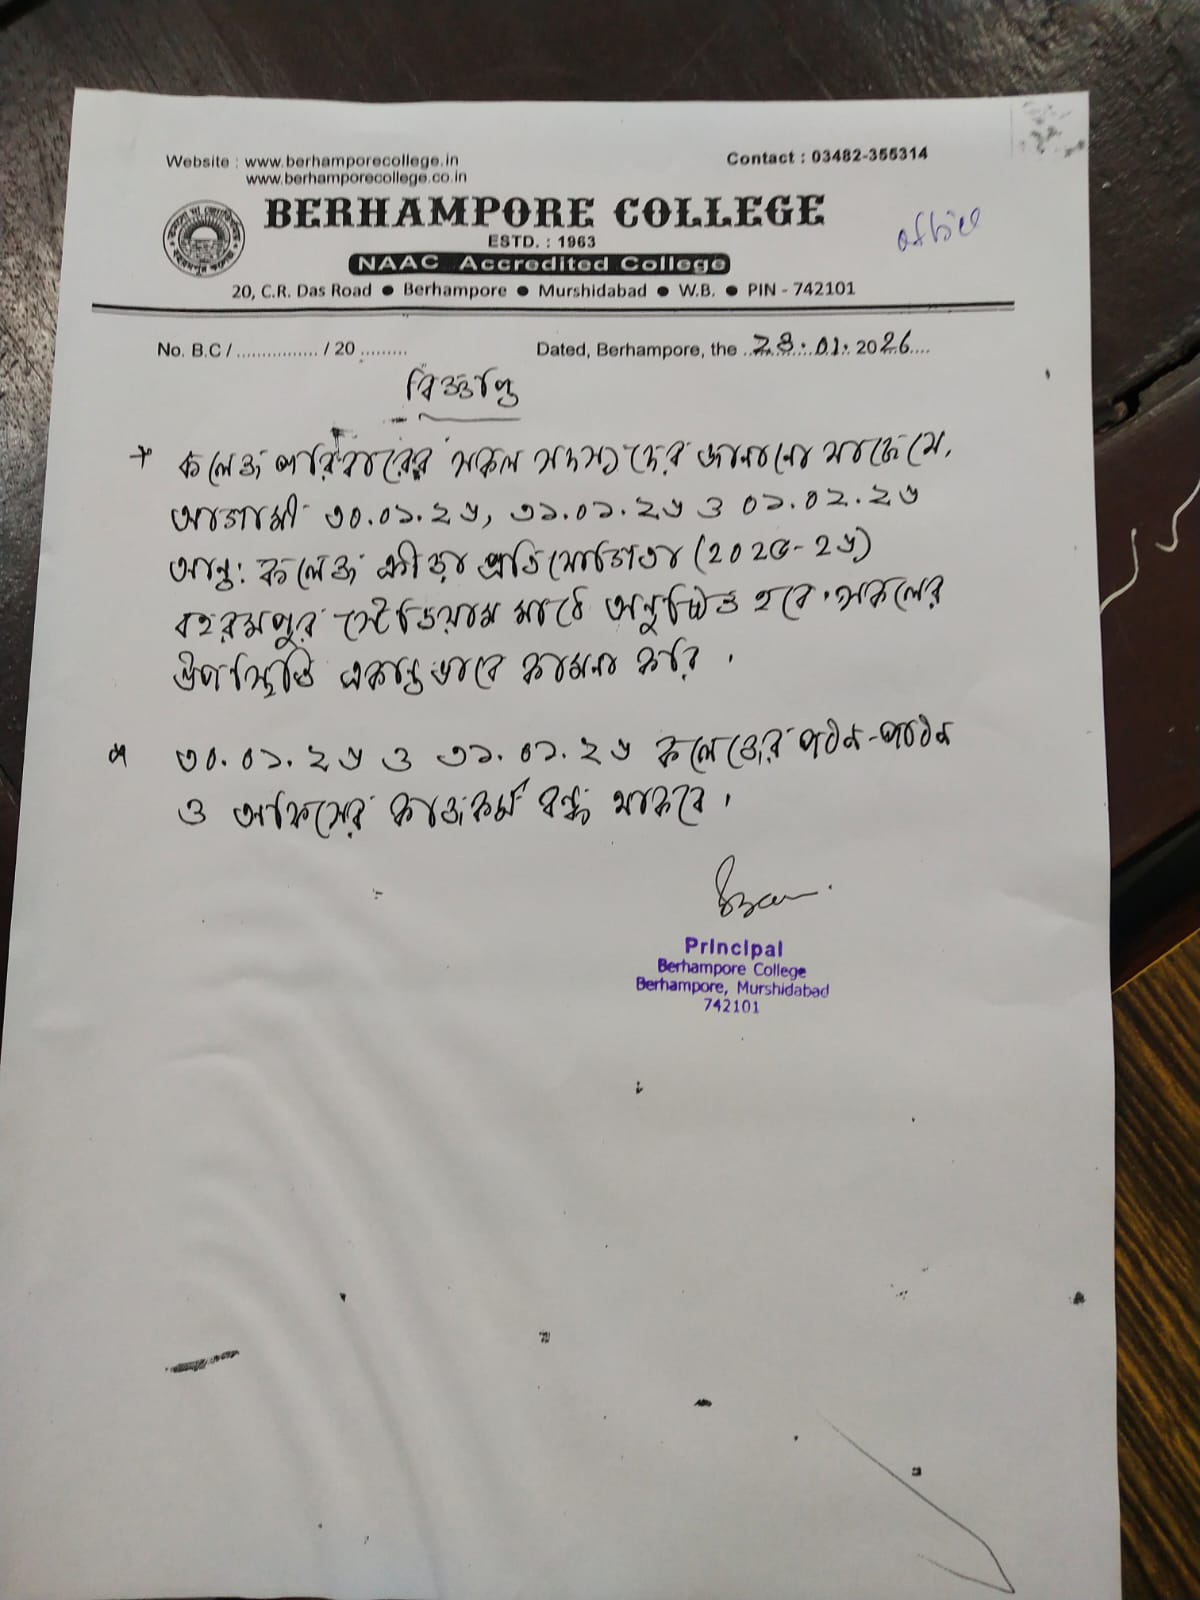 Website : www.berhamporecollege.in
Contact : 03482-355314
www.berhamporecollege.co.in
BERHAMPORE COLLEGE
office
ESTD. : 1963
NAAC Accredited College
20, C.R. Das Road ● Berhampore ● Murshidabad ● W.B. ● PIN - 742101
No. B.C / ................ / 20 .........
Dated, Berhampore, the ..28.01.2026....
বিজ্ঞপ্তি
কলেজ পরিবারের সকল সদস্যদের জানানো যাচ্ছে যে,
আগামী ৩০.০১.২৬, ৩১.০১.২৬ ও ০১.০২.২৬
আন্তঃ কলেজ ক্রীড়া প্রতিযোগিতা (২০২৫-২৬)
বহরমপুর স্টেডিয়াম মাঠে অনুষ্ঠিত হবে। সকলের
উপস্থিতি একান্তভাবে কামনা করি।
৩০.০১.২৬ ও ৩১.০১.২৬ কলেজের পঠন-পাঠন
ও অফিসের কাজকর্ম বন্ধ থাকবে।
Principal
Berhampore College
Berhampore, Murshidabad
742101